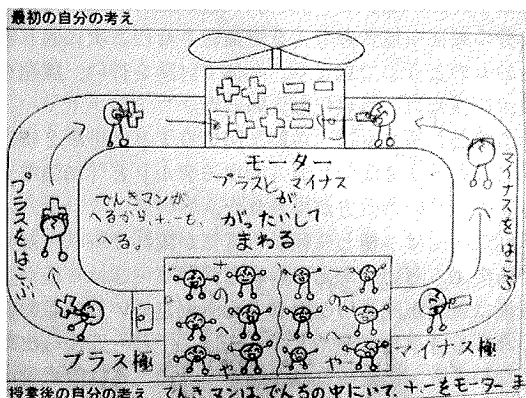 最初の自分の考え
モーター
プラスと マイナス
が
がったいして
まわる
でんきマンが
へるから、+、-も、
へる。
プラスをはこぶ
マイナスをはこぶ
+のへや
-のへや
プラス極
マイナス極
授業後の自分の考え でんきマンは、でんちの中にいて、+、-をモーター ま